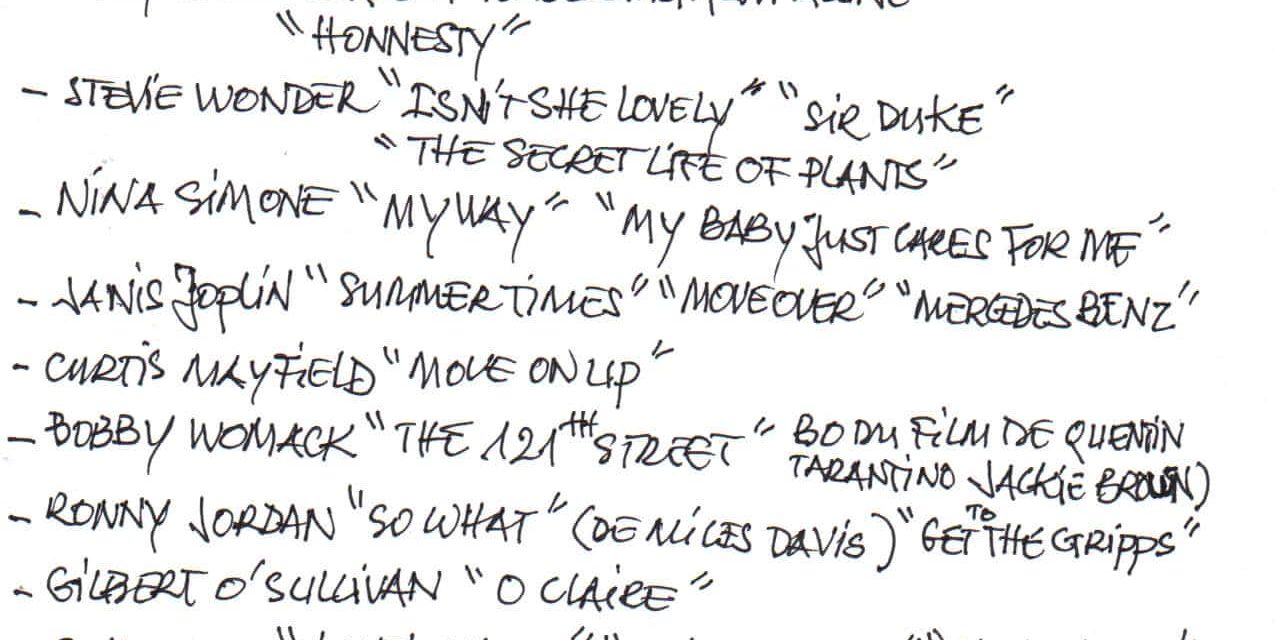 "HONNESTY"
- STEVIE WONDER "ISN'T SHE LOVELY" "SIR DUKE"
"THE SECRET LIFE OF PLANTS"
- NINA SIMONE "MY WAY" "MY BABY JUST CARES FOR ME"
- JANIS JOPLIN "SUMMER TIMES" "MOVE OVER" "MERCEDES BENZ"
- CURTIS MAYFIELD "MOVE ON UP"
- BOBBY WOMACK "THE 121TH STREET" BO DU FILM DE QUENTIN
TARANTINO JACKIE BROWN)
- RONNY JORDAN "SO WHAT" (DE MILES DAVIS) "GET TO THE GRIPPS"
- GILBERT O'SULLIVAN "O CLAIRE"